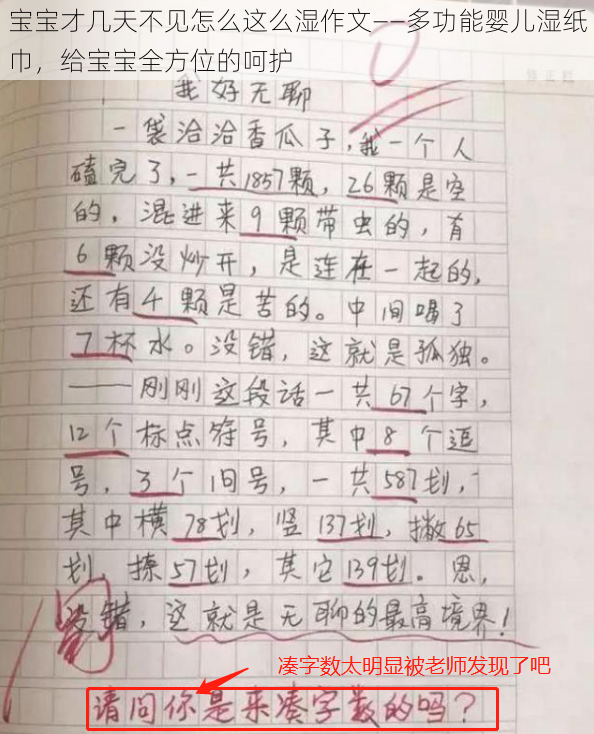 宝宝才几天不见怎么这么湿作文——多功能婴儿湿纸
巾，给宝宝全方位的呵护
我好无聊
一袋洽洽香瓜子，我一个人
磕完了，一共1857颗，26颗是空
的，混进来9颗带虫的，有
6颗没炒开，是连在一起的，
还有4颗是苦的。中间喝了
7杯水。没错，这就是孤独。
——刚刚这段话一共67个字，
12个标点符号，其中8个逗
号，3个旧号，一共587划，
其中横78划，竖137划，撇65
划，捺57划，其它139划。恩，
没错，这就是无聊的最高境界！
凑字数太明显被老师发现了吧
请问你是来凑字数的吗？